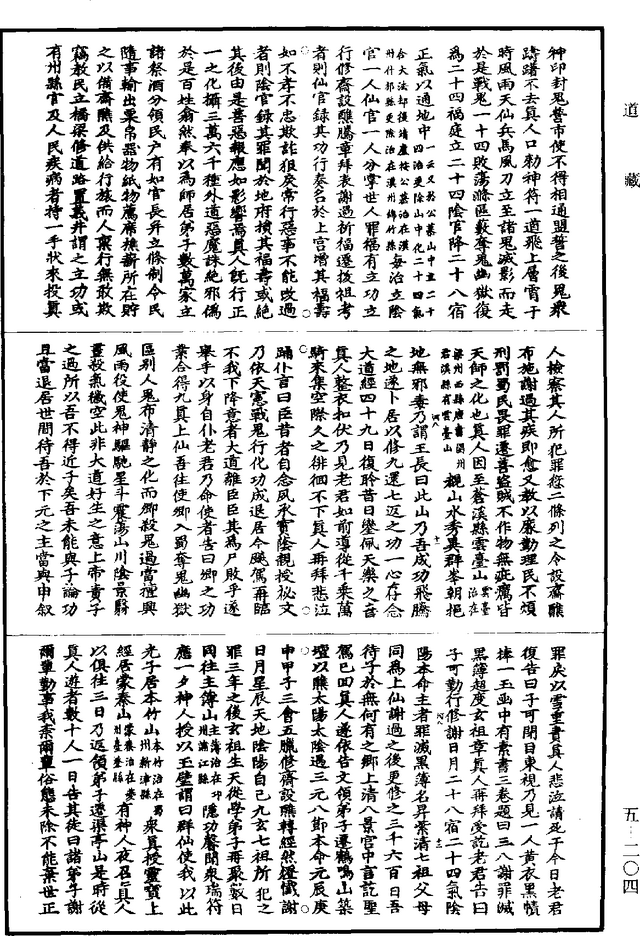 道藏
神印封鬼營市使不得相通盟誓之後鬼衆
躊躇不去真人口勑神符一道飛上層霄于
時風雨天仙兵馬風刀立至諸鬼滅影而走
於是戰鬼一十四敗蕩滌區數奪鬼幽獄復
為二十四福庭立二十四陰官降二十八宿
正氣以通地中
官一人仙官一人分掌世人罪福有立功立
行修齋設醮騰章拜表謝過祈福遷拔祖考
者則仙官錄其功行奏名於上宫增其福壽
如不孝不忠欺詐狠戾常行惡事不能改過
者則陰官錄其罪聞於地府損其福壽或絕
其後由是善惡報應如影響焉真人既行正
一之化攝三萬六千種外道惡魔誅絕邪僞
於是百姓翕然奉以為師居弟子數萬家立
諸祭酒分領民戶有如官長并立條制令民
隨事輸出粟帛器物紙物薦席樵薪所在貯
之以備齋醮及供給行旅而人稟行無敢欺
竊教民立橋梁修道路置義井謂之立功或
有州縣官及人民疾病者持一手狀來投真
人檢察其人所犯罪愆二條列之令設齋醮
布施謝過其疾即愈又教以廉勤理民不煩
刑罰蜀民畏罪遷善盜賊不作物無疵癘皆
天師之化也真人因至蒼溪縣雲臺山
觀山水秀異群峯朝挹
地無邪毒乃謂王長曰此山乃吾成功飛騰
之地遂卜居以修九還七返之功一心存念
大道經四十九日復聆昔日鑾佩天樂之音
真人整衣和伏乃見老君如前導從千乘萬
騎來集空際久之徘徊不下真人再拜悲泣
踊仆言曰臣昔者自念夙承寶蔭親授秘文
乃依天憲戰鬼行化功成退居今飈駕再臨
不我下降意者大道離臣臣其為尸敗乎遂
舉手以身自仆老君乃命使者告曰卿之功
業合得九真上仙吾往使卿入蜀奪鬼幽獄
區别人鬼布清静之化而卿殺鬼過當擅興
風雨役使鬼神驅馳星斗震蕩山川陰景翳
晝殺氣穢空此非大道好生之意上帝責子
之過所以吾不得近子矣吾未能與子論功
且當退居世間待吾於下元之主當與申叙
罪戾以雪重責真人悲泣請是于今日老君
復告曰子可閉目東視乃見一人黄衣黑幘
捧一玉凾中有素書三卷題曰三八謝罪滅
黑簿超度玄祖章真人再拜受訖老君告曰
子可勤行修謝日月二十八宿二十四氣陰
陽本命主者罪滅黑簿名昇紫清七祖父母
同為上仙謝過之後更修之三千六百日吾
待子於無何有之鄉上清八景宫中言訖聖
駕已回真人遂依告文領弟子還鶴鳴山築
壇以醮太陽太陰過三元八節本命元辰庚
申甲子三會五臘修齋設醮轉經然燈懺謝
日月星辰天地陰陽自己九玄七祖所犯之
罪三年之後玄祖生天從學弟子再聚數日
同往主簿山
應一夕神人授以玉璧謂曰群仙使我以此
光子居本竹山
經居蒙秦山
以俱往三日乃返領弟子還渠亭山是時從
真人遊者數十人一日告其徒曰諸弟子謝
爾輩勤事我索爾輩俗態未除不能棄世正
五—二〇四